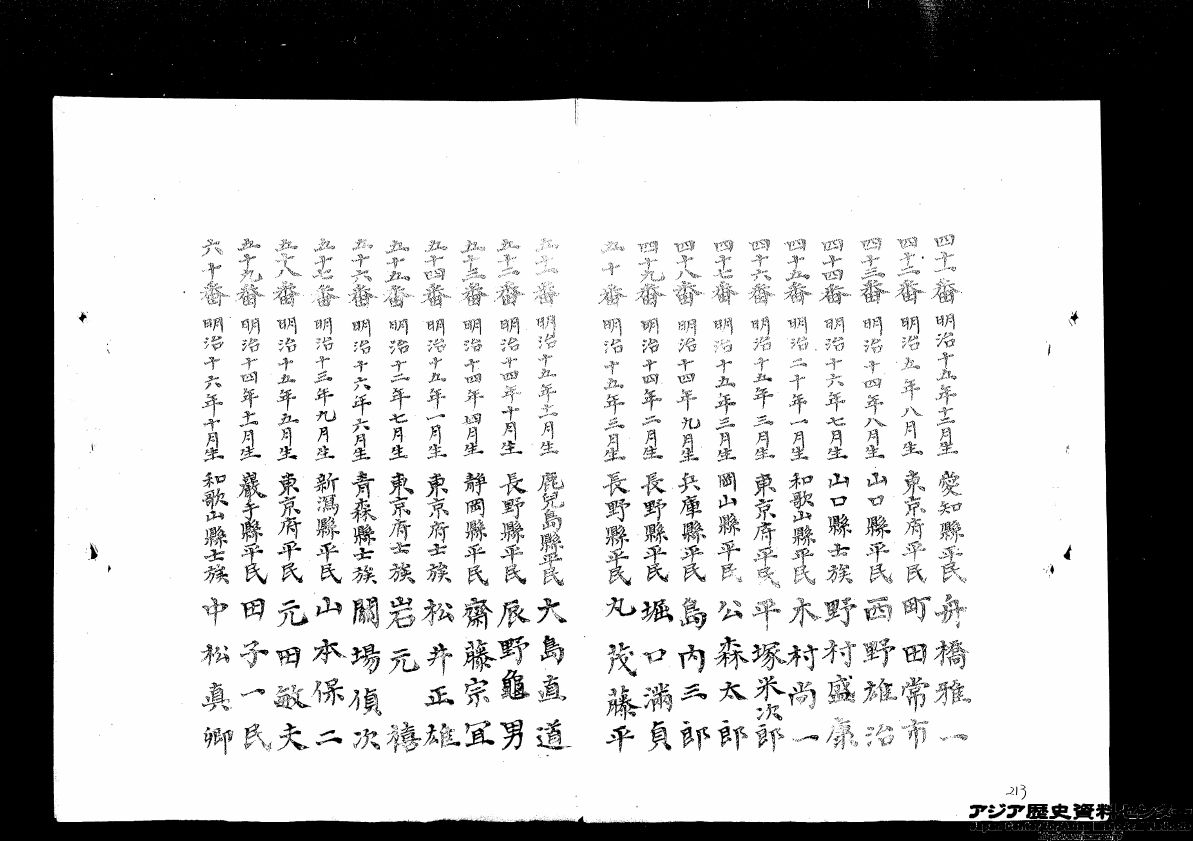 四十一番 明治十五年十二月生 愛知縣平民 舟橋雅一
四十二番 明治五年八月生 東京府平民 町田常市
四十三番 明治十四年八月生 山口縣平民 西野雄治
四十四番 明治十六年七月生 山口縣士族 野村盛康
四十五番 明治二十年一月生 和歌山縣平民 木村尚一
四十六番 明治十五年三月生 東京府平民 平塚米次郎
四十七番 明治十五年三月生 岡山縣平民 公森太郎
四十八番 明治十四年九月生 兵庫縣平民 島内三郎
四十九番 明治十四年二月生 長野縣平民 堀口満貞
五十番 明治十五年三月生 長野縣平民 丸茂藤平
五十一番 明治十五年十一月生 鹿兒島縣平民 大島直道
五十二番 明治十四年十月生 長野縣平民 辰野龜男
五十三番 明治十四年四月生 静岡縣平民 齋藤宗宜
五十四番 明治十五年一月生 東京府士族 松井正雄
五十五番 明治十二年七月生 東京府士族 岩元禧
五十六番 明治十六年六月生 青森縣士族 關場偵次
五十七番 明治十三年九月生 新潟縣平民 山本保二
五十八番 明治十五年五月生 東京府平民 元田敏夫
五十九番 明治十四年十一月生 巖手縣平民 田子一民
六十番 明治十六年十月生 和歌山縣士族 中松真卿
213
アジア歴史資料センター